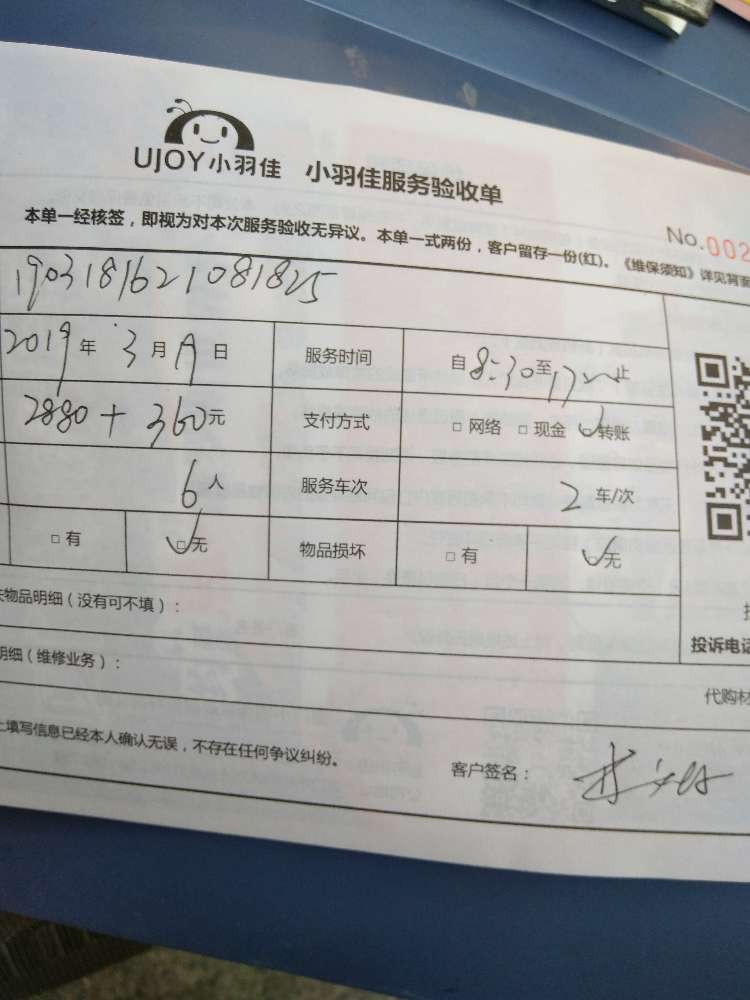 UJOY小羽佳 小羽佳服务验收单
No.002
本单一经核签，即视为对本次服务验收无异议。本单一式两份，客户留存一份(红)。《维保须知》详见背面
1903181621081825
2019年 3月19日 服务时间 自8:30至17 止
2880+360元 支付方式 □网络 □现金 ☑转账
6人 服务车次 2车/次
□有 ☑无 物品损坏 □有 ☑无
物品明细（没有可不填）：
投诉电话
明细（维修业务）：
代购材
填写信息已经本人确认无误，不存在任何争议纠纷。
客户签名：